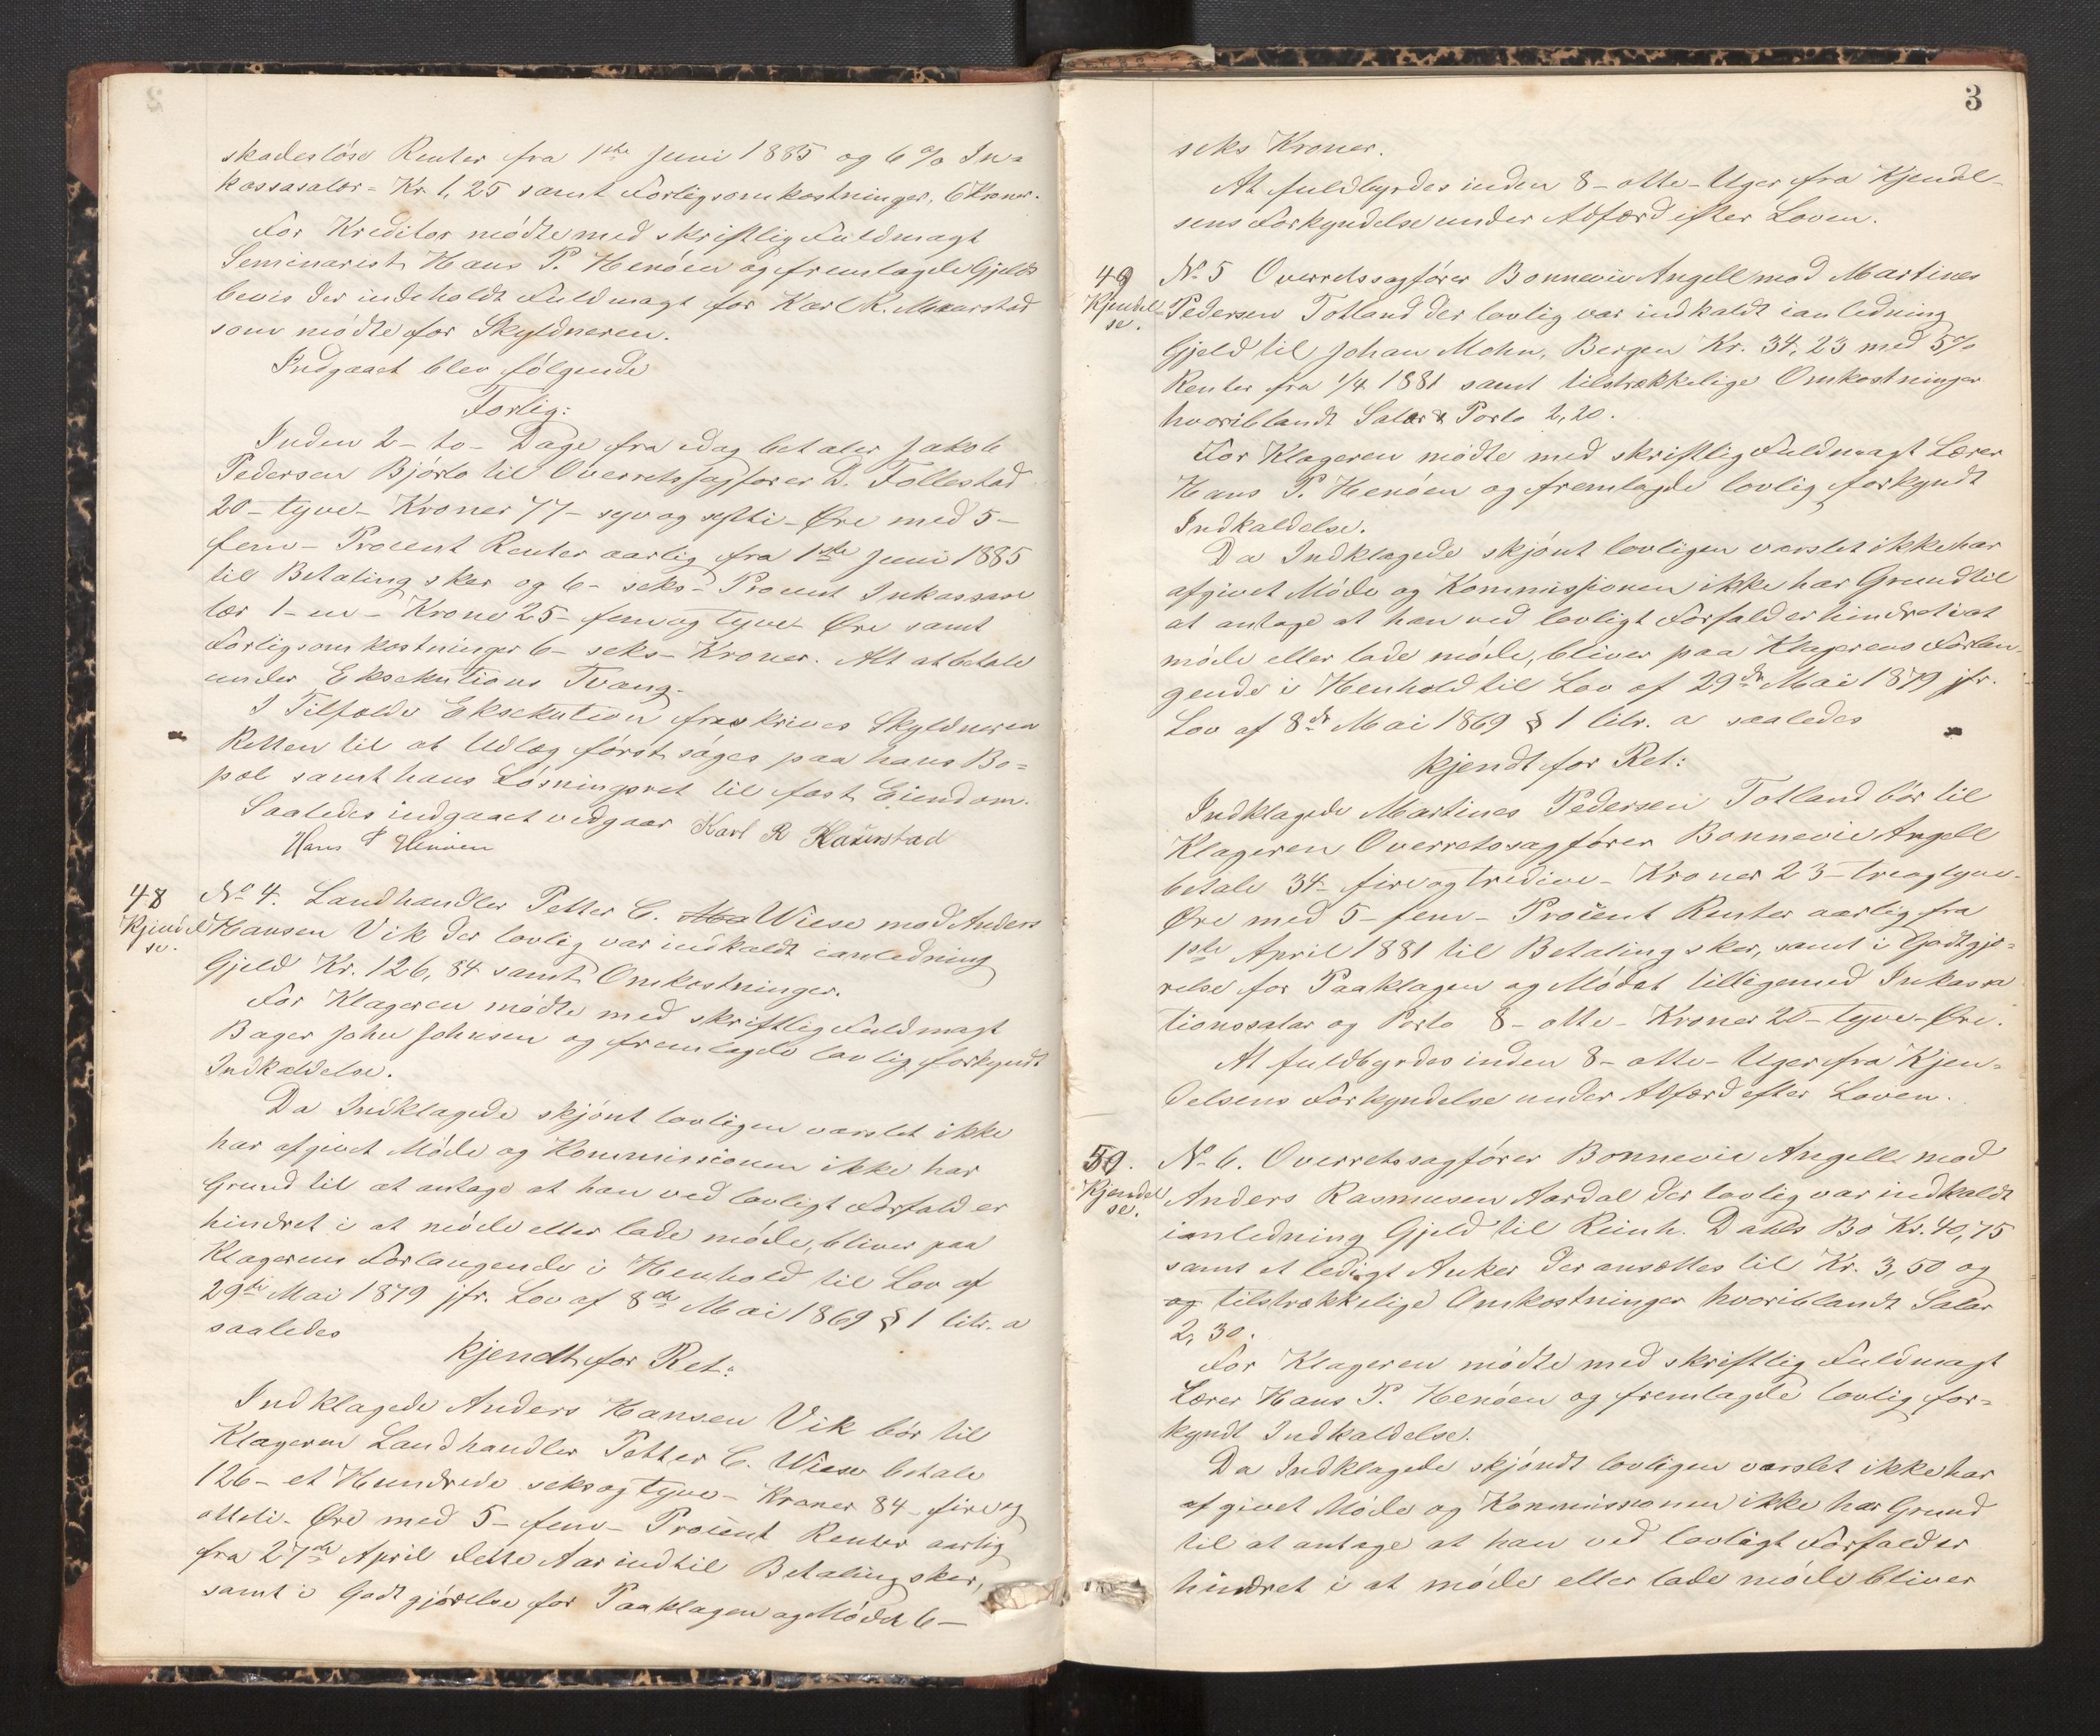 skadesløse Renter fra 1ste Juni 1885 og 6 % In=
kassasalær = Kr. 1,25 samt Forligsomkostninger, 6 Kroner.
For Kreditor mødte med skriftlig Fuldmagt
Seminarist Hans P. Henøen og fremlagde Gjelds
bevis der indeholdt Fuldmagt for Karl R.
som mødte for Skyldneren.
Indgaaet blev følgende
Forlig:
Inden 2 – to – Dage fra idag betaler Jakob
Pedersen Bjørlo til Overretssagfører D. Follestad
20 – tyve – Kroner 77 – syv og sytti – Øre med 5 –
fem – Procent Renter aarlig fra 1ste Juni 1885
til Betaling sker og 6 – seks – Procent Inkassosa
lær 1 – en – Krone 25 – fem og tyve – Øre samt
Forligsomkostninger 6 – seks – Kroner. Alt at betale
under Eksekutions Tvang.
I Tilfælde Eksekution fraskrives Skyldneren
Retten til at Udlæg først søges paa hans Bo=
pæl samt hans Løsningsret til fast Eiendom.
Saaledes indgaaet vedgaar Karl R
Hans P Henøen
48 No 4. Landhandler Petter C. Wiese mod Anders
Kjendel Hansen Vik der lovlig var indkaldt ianledning
se. Gjeld Kr. 126,84 samt Omkostninger.
For Klageren mødte med skriftlig Fuldmagt
Bager John Johnsen og fremlagde lovlig forkyndt
Indkaldelse.
Da Indklagede skjønt lovligen varslet ikke
har afgivet Møde og Kommissionen ikke har
Grund til at antage at han ved lovligt Forfald er
hindret i at møde eller lade møde, bliver paa
Klagerens Forlangende i Henhold til Lov af
29de Mai 1879 jfr. Lov af 8de Mai 1869 § 1 litr. a
saaledes
kjendt for Ret:
Indklagede Anders Hansen Vik bør til
Klageren Landhandler Petter C. Wiese betale
126 – et Hundrede seks og tyve – Kroner 84 – fire og
otteti – Øre med 5 – fem – Procent Renter aarlig
fra 27de April dette Aar indtil Betaling sker,
samt i Godtgjørelse for Paaklagen og Mødet 6 –
3
seks Kroner.
At fuldbyrdes inden 8 – otte – Uger fra Kjendel-
sens Forkyndelse under Adfærd efter Loven.
49 No 5 Overretssagfører Bonnevie Angell mod Martines
Kjendel Pedersen Totland der lovlig var indkaldt ianledning
se. Gjeld til Johan Mohn, Bergen Kr. 34,23 med 5 %
Renter fra 1/4 1881 samt tilstrækkelige Omkostninger
hvoriblandt Salær & Porto 2,20.
For Klageren mødte med skriftlig Fuldmagt Lærer
Hans P. Henøen og fremlagde lovlig forkyndt
Indkaldelse.
Da Indklagede skjønt lovligen varslet ikke har
afgivet Møde og Kommissionen ikke har Grund til
at antage at han ved lovligt Forfald er hindret i at
møde eller lade møde, bliver paa Klagerens Forlan-
gende i Henhold til Lov af 29de Mai 1879 jfr.
Lov af 8de Mai 1869 § 1 litr. a saaledes
kjendt for Ret:
Indklagede Martines Pedersen Totland bør til
Klageren Overretssagfører Bonnevie Angell
betale 34 – fire og tredive – Kroner 23 – tre og tyve –
Øre med 5 – fem – Procent Renter aarlig fra
1ste April 1881 til Betaling sker, samt i Godtgjø=
relse for Paaklagen og Mødet tilligemed Inkassa
tionssalær og Porto 8 – otte – Kroner 20 – tyve – Øre.
At fuldbyrdes inden 8 – otte – Uger fra Kjen=
delsens Forkyndelse under Adfærd efter Loven.
50. No 6. Overretssagfører Bonnevie Angell mod
Kjendel Anders Rasmusen Aardal der lovlig var indkaldt
se. ianledning Gjeld til Reinh. Dahls Bo Kr. 40,75
samt et ledigt Anker der ansættes til Kr. 3,50 og
og tilstrækkelige Omkostninger hvoriblandt Salær
2,30.
For Klageren mødte med skriftlig Fuldmagt
Lærer Hans P. Henøen og fremlagde lovlig for=
kyndt Indkaldelse.
Da Indklagede skjøndt lovligen varslet ikke har
afgivet Møde og Kommissionen ikke har Grund
til at antage at han ved lovligt Forfald er
hindret i at møde eller lade møde bliver